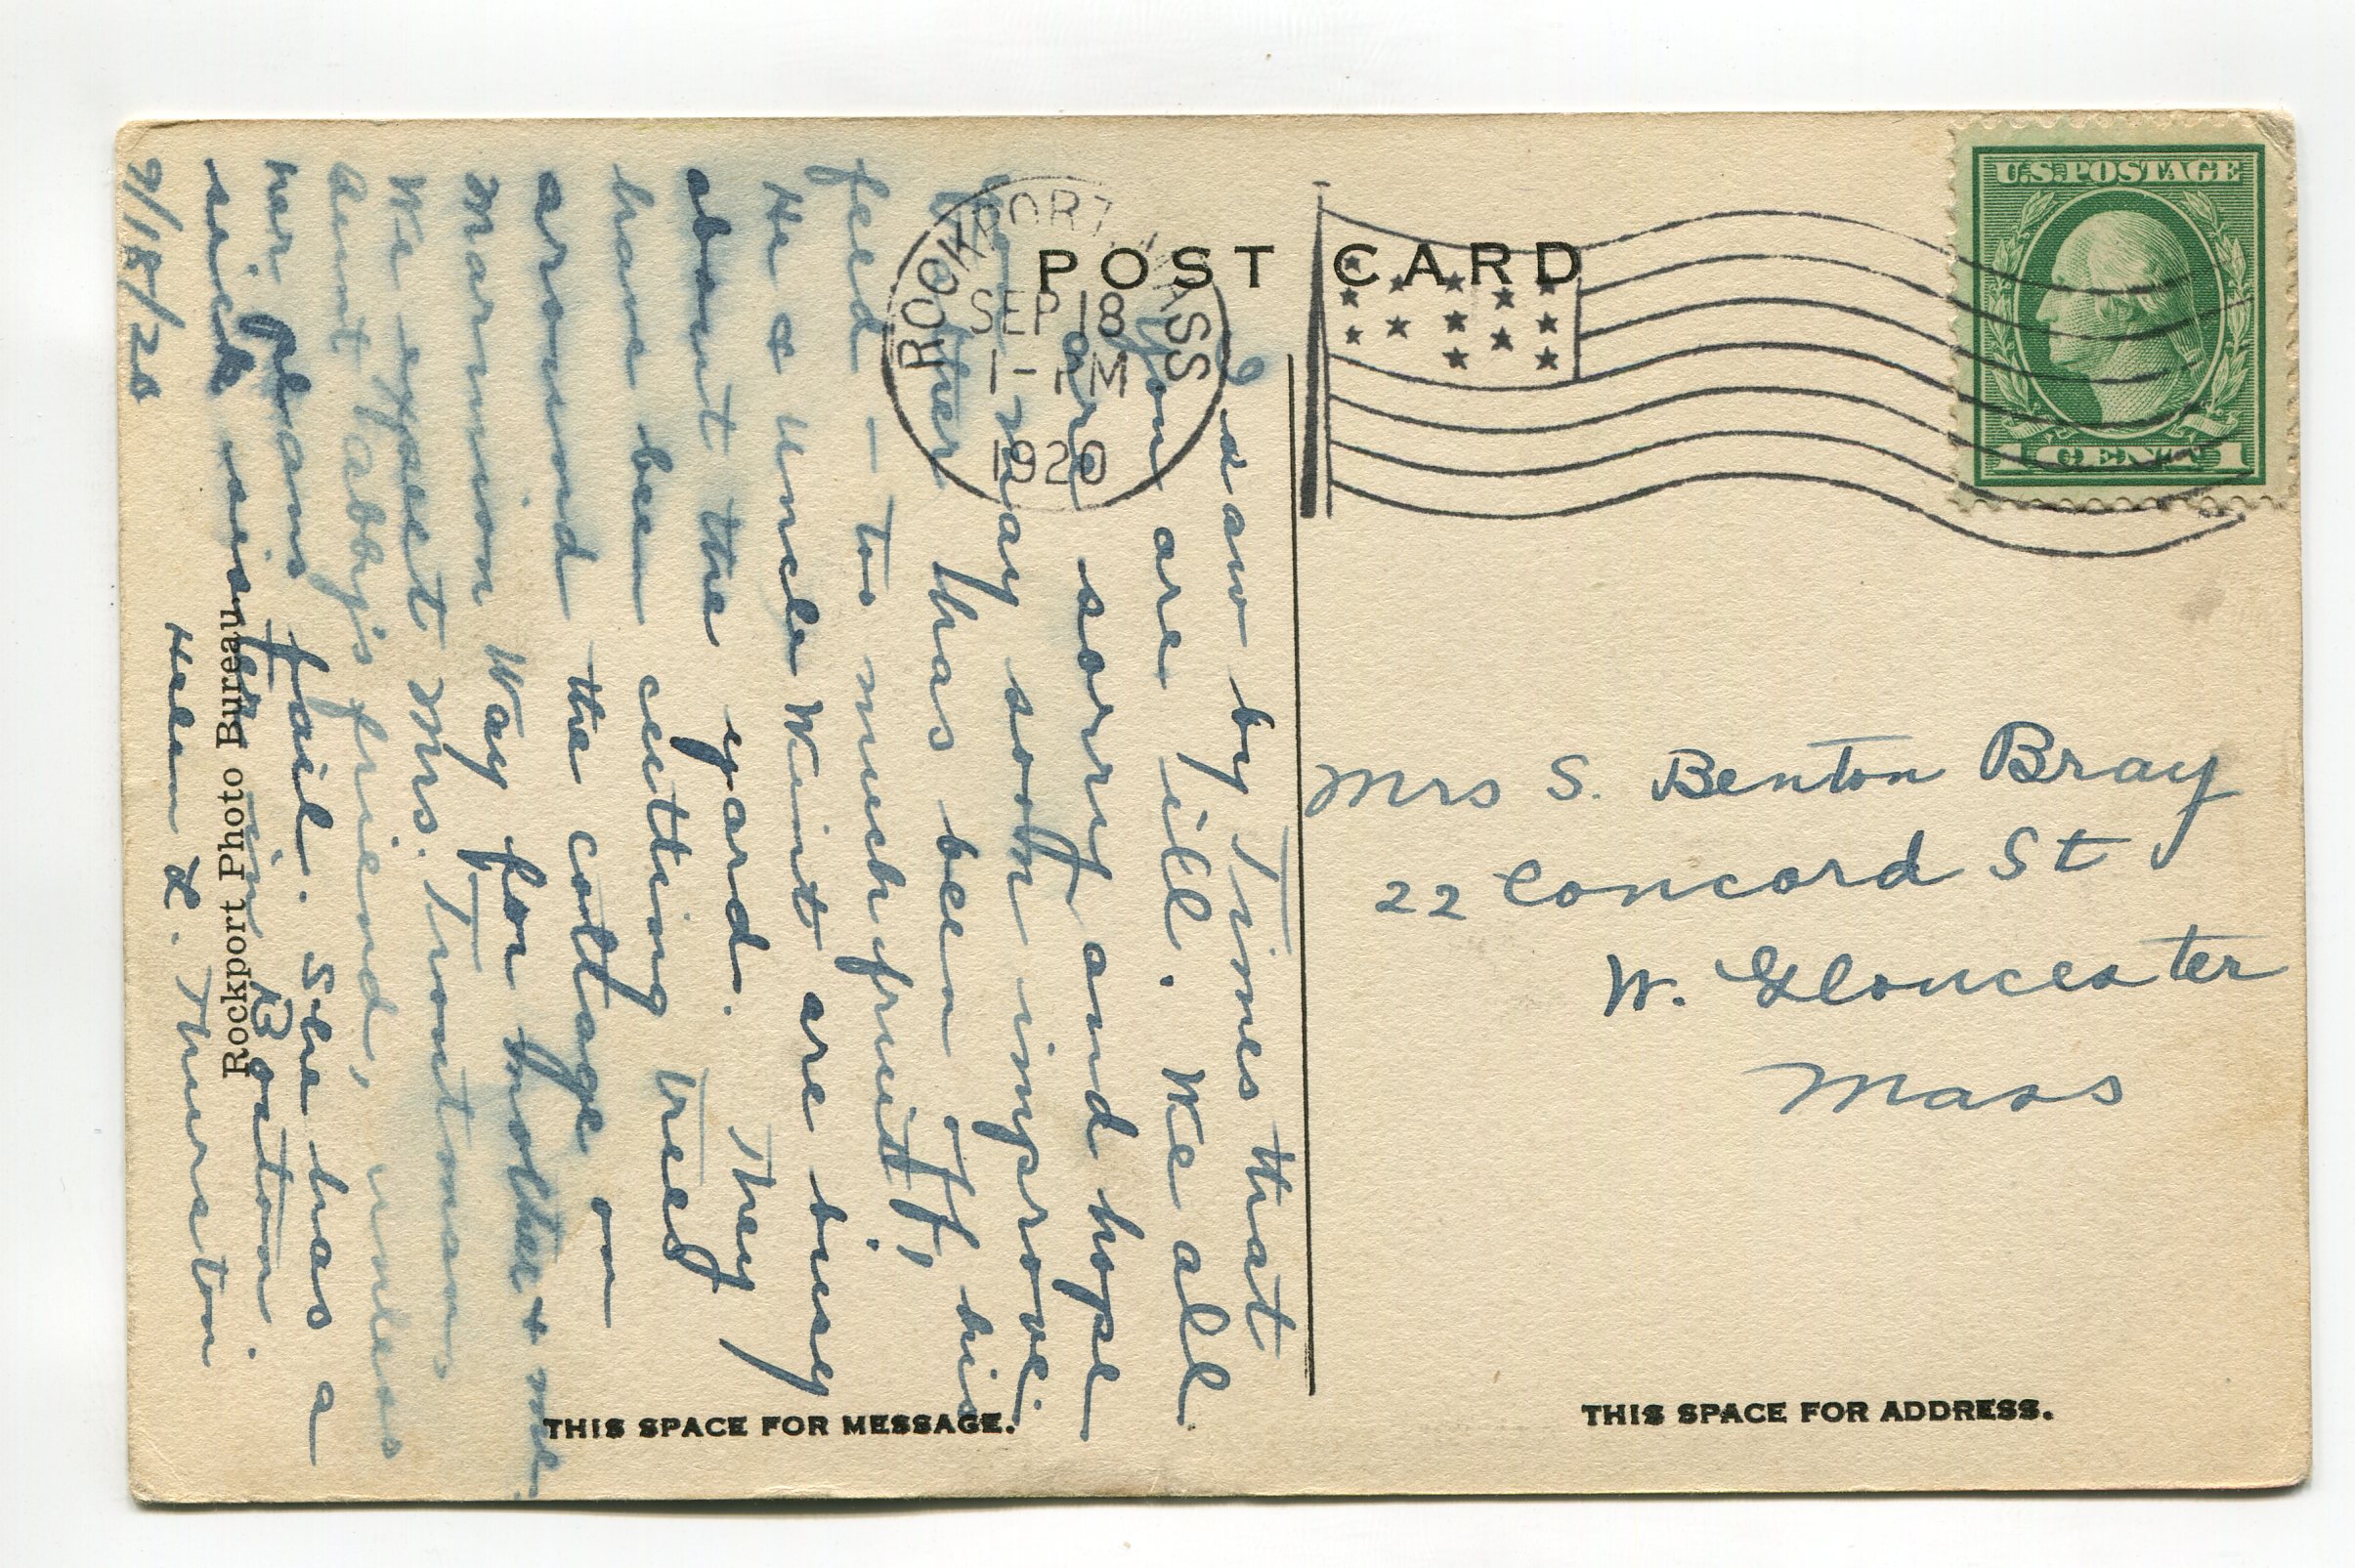 POST CARD
ROCKPORT, MASS
SEP 18
1-PM
1920
U.S. POSTAGE
1 CENT 1
I saw by Times that
you are ill. We all
are sorry and hope
you may soon improve.
has been off his
feed - too much fruit,
He & Uncle are busy
about the yard. They
have been cutting trees
around the cottage on
Way for mother & me
We expect Mrs. Troutman
Aunt Tabby's friend, unless
her plans fail. She has a
sick sister in Boston.
Helen L. Thurston
9/18/20
Mrs S. Benton Bray
22 Concord St
W. Gloucester
Mass
Rockport Photo Bureau
THIS SPACE FOR MESSAGE.
THIS SPACE FOR ADDRESS.